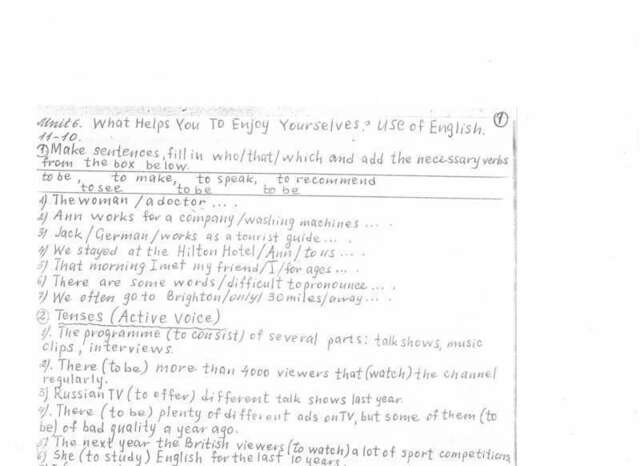 Unit 6. What Helps You To Enjoy Yourselves? Use of English. ①
11-10.
① Make sentences, fill in who/that/which and add the necessary verbs
from the box below.
to be, to make, to speak, to recommend
to see to be to be
1) The woman / a doctor ... .
2) Ann works for a company / washing machines ... .
3) Jack / German / works as a tourist guide ... .
4) We stayed at the Hilton Hotel / Ann / to us ... .
5) That morning I met my friend / I / for ages ... .
6) There are some words / difficult to pronounce ... .
7) We often go to Brighton / only / 30 miles / away ... .
② Tenses (Active voice)
1). The programme (to consist) of several parts: talk shows, music
clips, interviews.
2). There (to be) more than 4000 viewers that (watch) the channel
regularly.
3) Russian TV (to offer) different talk shows last year.
4). There (to be) plenty of different ads on TV, but some of them (to
be) of bad quality a year ago.
5) The next year the British viewers (to watch) a lot of sport competitions
6) She (to study) English for the last 10 years.